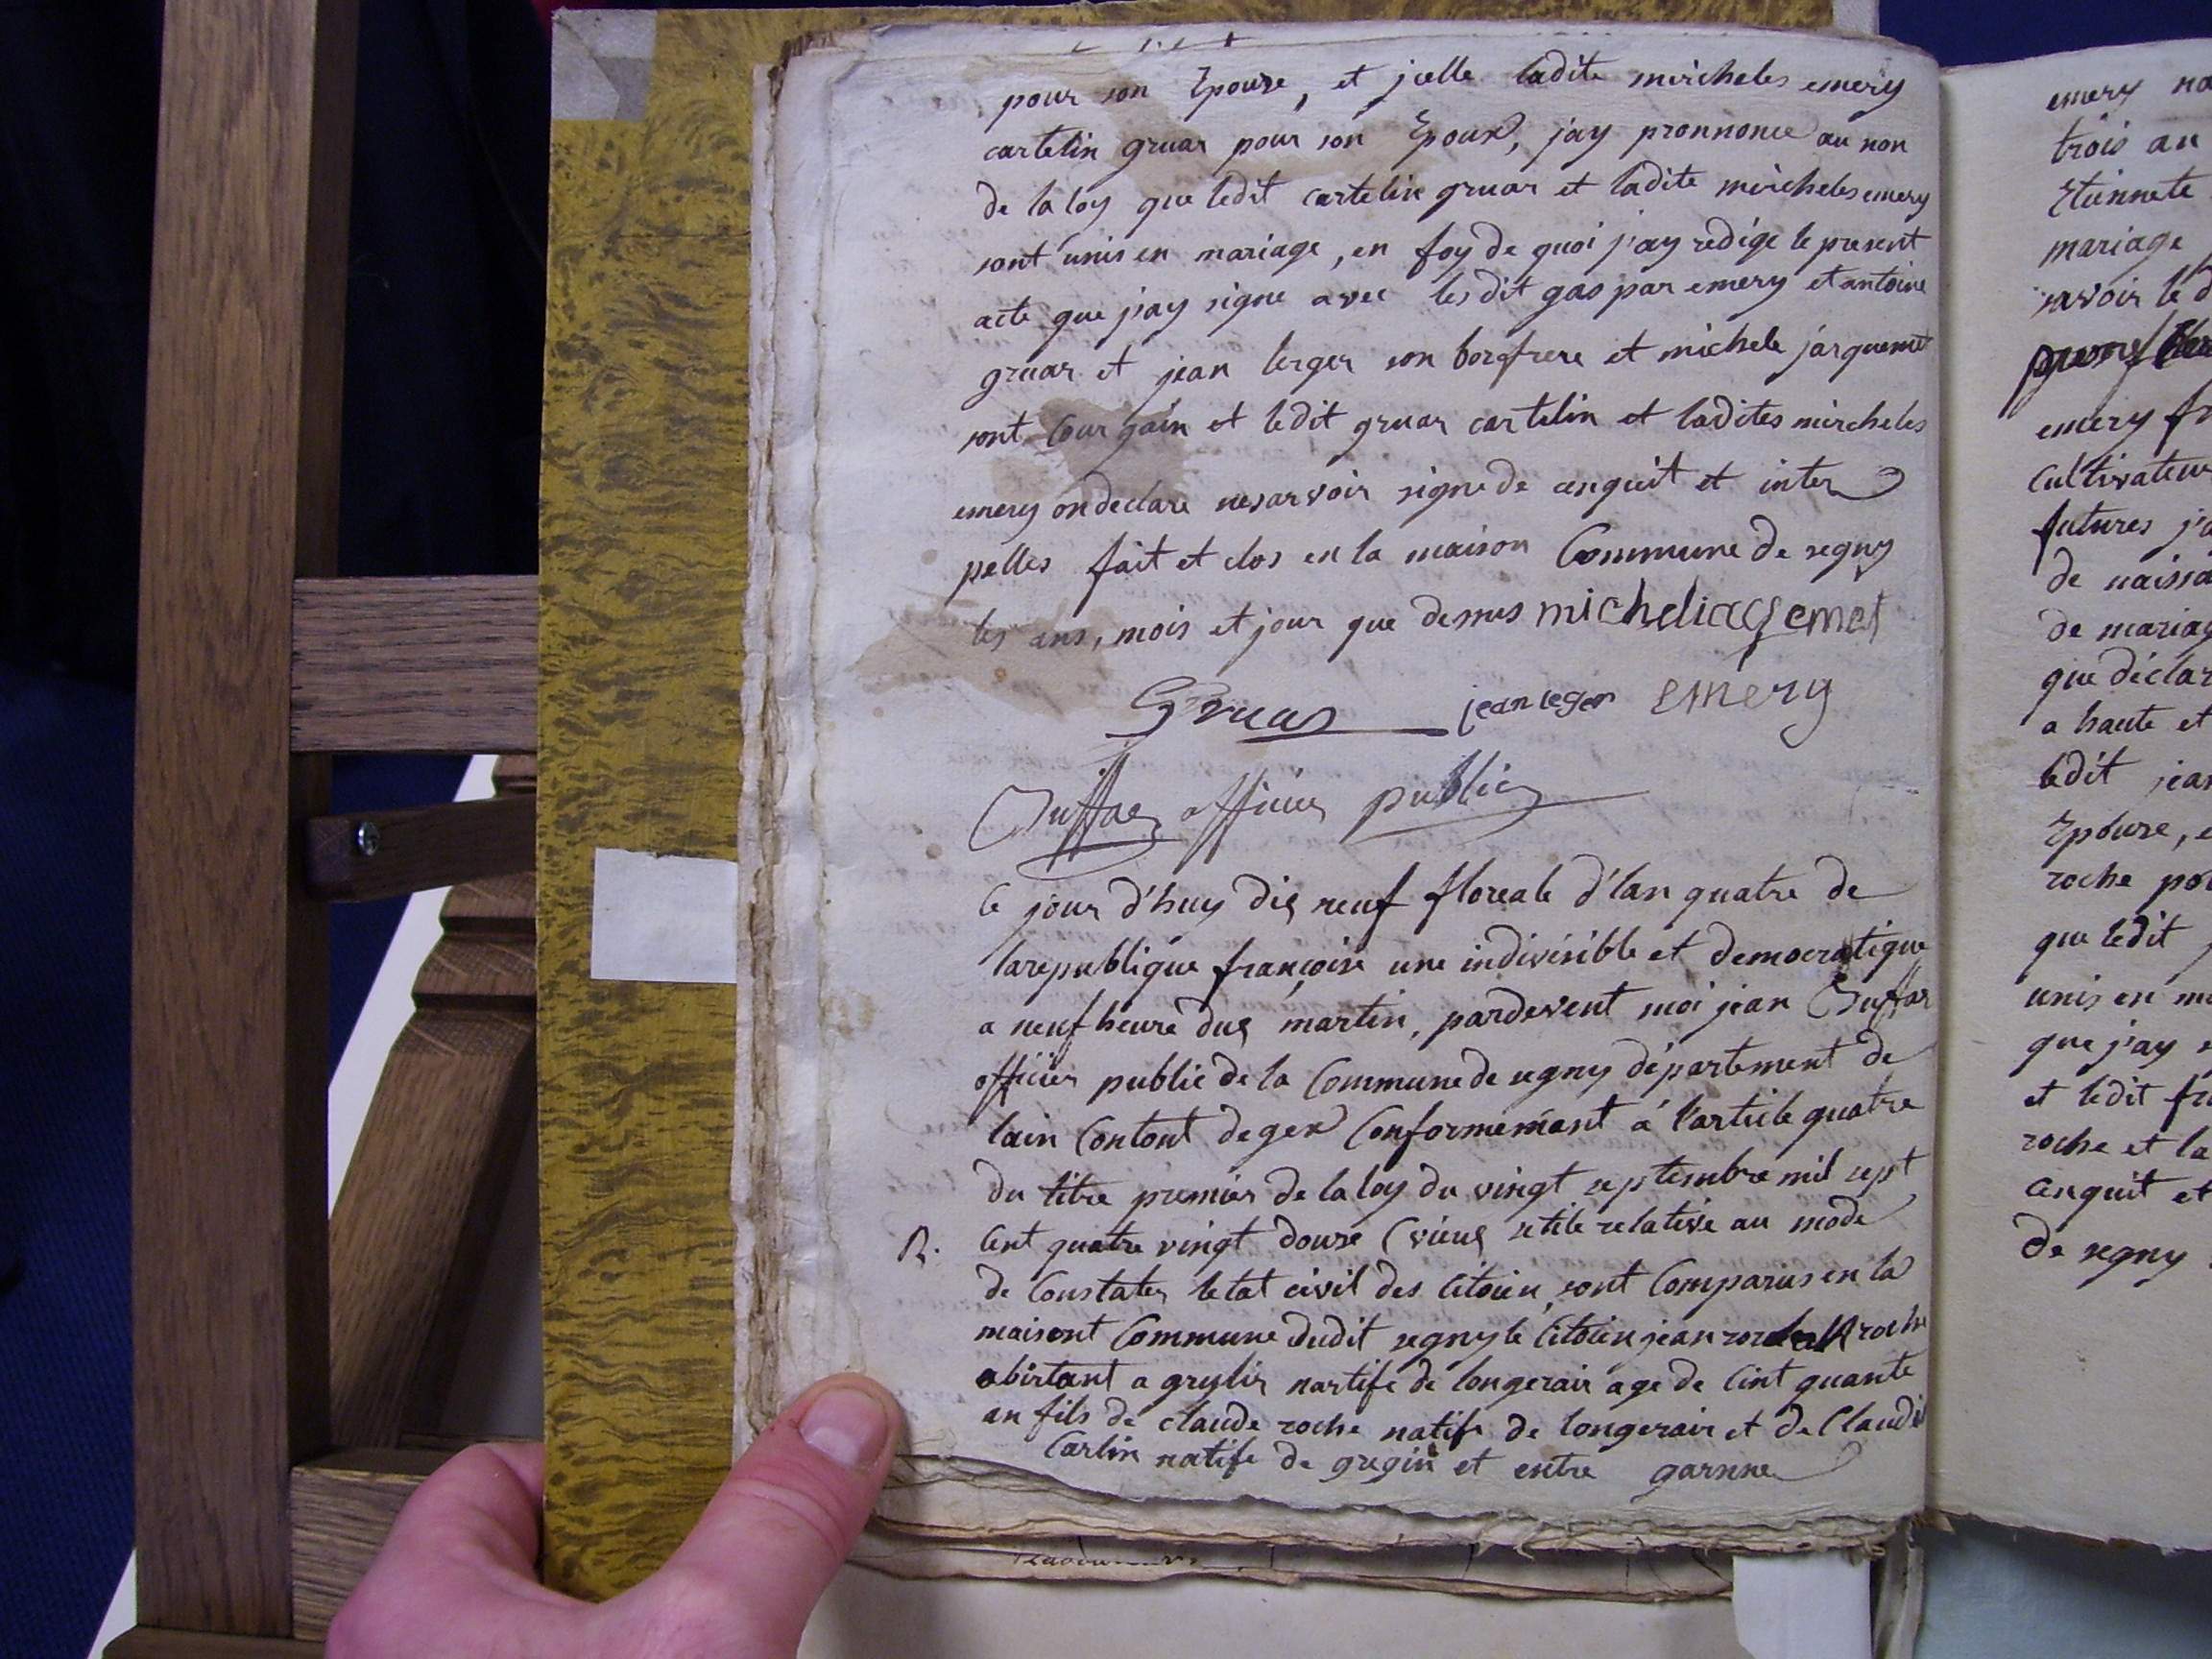 pour son Epouse, et jcelle ladite mircheles emery
cartelin gruar pour son Epoux, jay pronnonce au non
de la loy que ledit cartelin gruar et ladite mircheles emery
sont unis en mariage, en foy de quoi j'ay redige le present
acte que j'ay signe avec lesdit gaspar emery et antoine
gruar et jean lerger son borfrere et michele jarquemet
sont Cour gain et ledit gruar cartelin et ladites mircheles
emery on declare nesarvoir signe de enquit et inter
pelles fait et clos en la maison Commune de segny
les ans, mois et jour que dessus micheliacqemet
Gruar jean leger emery
officier public
Ce jour d'huy dix neuf floreale d'lan quatre de
larepublique françoise une indivisible et democratique
a neuf heure dux martin, pardevent moi jean
officier public de la Commune de segny département de
lain Contont de gex Conformément á l'article quatre
du titre premier de la loy du vingt septembre mil sept
R. Cent quatre vingt douse (vieux stile relative au mode
de Constater letat civil des Citoien, sont Comparus en la
maisont Commune dudit segny le Citoien jean roche
abirtant a grylir nartife de longerair age de Cint quante
an fils de claude roche natife de longerair et de Claudi
Carlin natife de gregin et entre garnne
emery
trois an
Etiennete
mariage
sarvoir le d
emery
cultivateur
futures j'a
de naissa
de mariag
que déclar
a haute et
ledit jean
Epouse, e
roche po
que ledit
unis en ma
que j'ay
et ledit
roche et la
enquit et
de segny